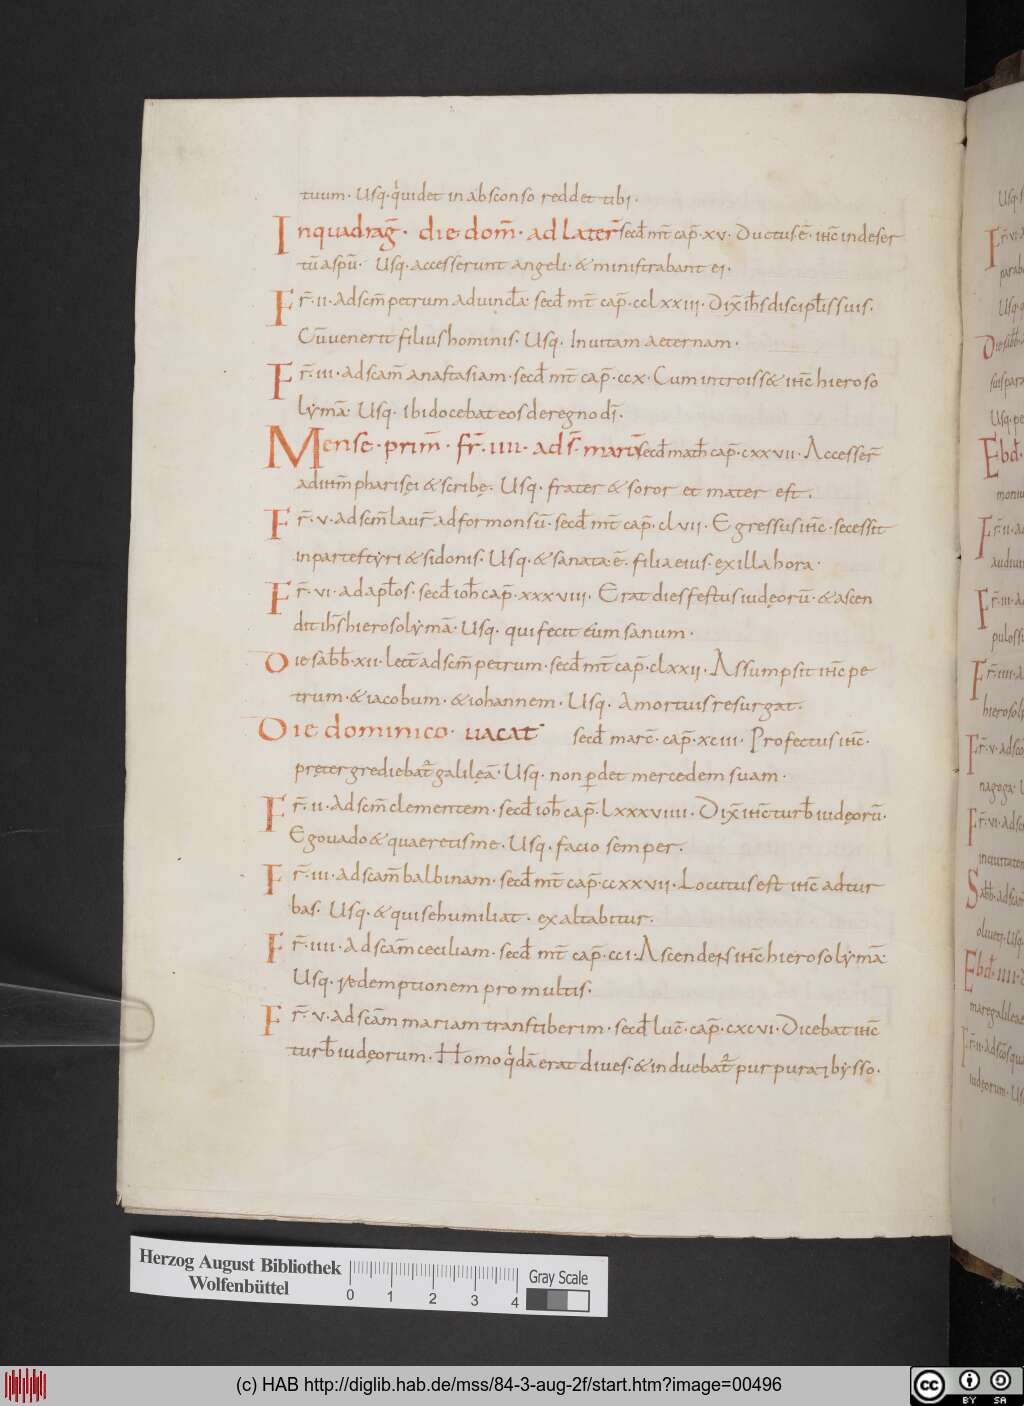 tuum · Usq· quidet in absconso reddet tibi ·
In quadrag̅ · die dom̅ · ad later̅ secd̅ mt̅ cap̅ · xv · Ductus · e̅ · ih̅c in deser
tu̅ a spu̅ · Usq· accesserunt angeli · & ministrabant ei ·
Fr̅ · ii · ad sc̅m petrum ad uincl̅a · secd̅ mt̅ cap̅ · cclxxiii · Dix̅ ih̅s discipl̅is suis ·
Cu̅ uenerit filius hominis · Usq· In uitam aeternam ·
Fr̅ · iii · ad sc̅am anastasiam · secd̅ mt̅ cap̅ · ccx · Cum introiss& ih̅c hieroso
lẏma̅ · Usq· Ibi docebat eos de regno dī ·
Mense · prim̅ · fr̅ · iiii · ad s̅ · mariā secd̅ math̅ cap̅ · cxxvii · Accesser̅
ad ih̅m pharisęi & scribę · Usq· frater & soror et mater est ·
Fr̅ · v · ad sc̅m laur̅ ad formonsu̅ · secd̅ mt̅ cap̅ · clvii · Egressus ih̅c · secessit
in partes tẏri & sidonis · Usq· & sanata · e̅ · filia eius · ex illa hora ·
Fr̅ · vi · ad apl̅os · secd̅ ioh̅ cap̅ · xxxviii · Erat dies festus iudęoru̅ · & ascen
dit ih̅s hierosolẏma̅ · Usq· qui fecit eum sanum ·
Die sabb̅ · xii · lect̅ ad sc̅m petrum · secd̅ mt̅ cap̅ · clxxii · Assumpsit ih̅c pe
trum · & iacobum · & iohannem · Usq· A mortuis resurgat ·
Die dominico · uacat secd̅ marc̅ · cap̅ · xciii · Profectus ih̅c ·
pręter grediebat᷑ galilęa̅ · Usq· non ꝑdet mercedem suam ·
Fr̅ · ii · ad sc̅m clementem · secd̅ ioh̅ cap̅ · lxxxviiii · Dix̅ ih̅c turb̅ iudęoru̅ ·
Ego uado & quaeretis me · Usq· facio semper ·
Fr̅ · iii · ad sc̅am balbinam · secd̅ mt̅ cap̅ · ccxxvii · Locutus est ih̅c ad tur
bas · Usq· & qui se humiliat · exaltabitur ·
Fr̅ · iiii · ad sc̅am ceciliam · secd̅ mt̅ cap̅ · cci · Ascendens ih̅c hierosolẏma̅
Usq· redemptionem pro multis ·
Fr̅ · v · ad sc̅am mariam transtiberim · secd̅ luc̅ · cap̅ · cxcvi · Dicebat ih̅c
turb̅ iudęorum · Homo quida̅ erat diues · & induebat᷑ purpura ⁊ bẏsso ·
Herzog August Bibliothek
Wolfenbüttel
0 1 2 3 4
Gray Scale
(c) HAB http://diglib.hab.de/mss/84-3-aug-2f/start.htm?image=00496
cc BY SA